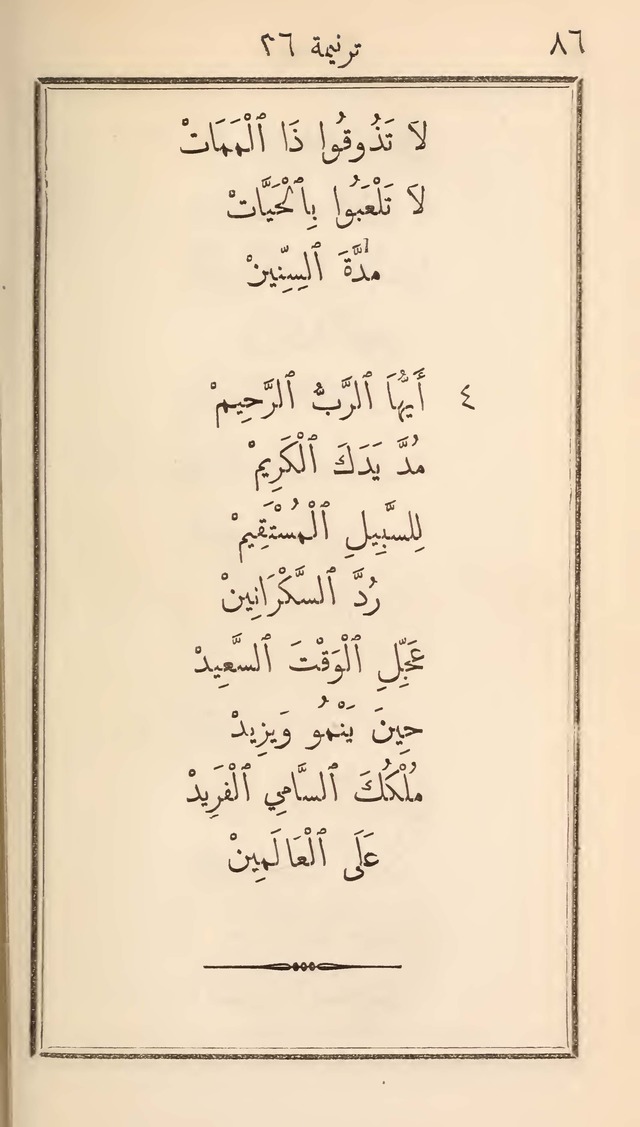 ٨٦ ترنيمة ٣٦
لَا تَذُوقُوا ذَا ٱلْمَمَاتْ
لَا تَلْعَبُوا بِٱلْحَيَّاتْ
مُدَّةَ ٱلسِّنِينْ
٤ أَيُّهَا ٱلرَّبُّ ٱلرَّحِيمْ
مُدَّ يَدَكَ ٱلْكَرِيمْ
لِلسَّبِيلِ ٱلْمُسْتَقِيمْ
رُدَّ ٱلسَّكْرَانِينْ
عَجِّلِ ٱلْوَقْتَ ٱلسَّعِيدْ
حِينَ يَنْمُو وَيَزِيدْ
مُلْكُكَ ٱلسَّامِي ٱلْفَرِيدْ
عَلَى ٱلْعَالَمِينْ